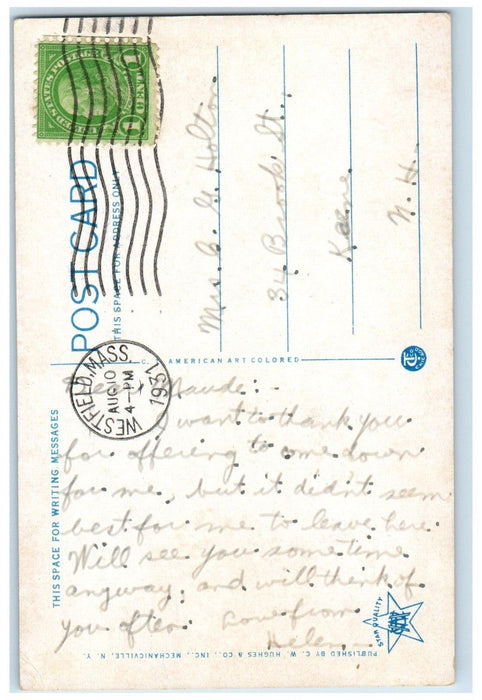 UNITED STATES POSTAGE
1 CENT 1
WESTFIELD, MASS.
AUG 10
4-PM
1931
POST CARD
THIS SPACE FOR ADDRESS ONLY
THIS SPACE FOR WRITING MESSAGES
Dear Maude:
I want to thank you
for offering to come down
for me, but it didn't seem
best for me to leave here.
Will see you sometime
anyway, and will think of
you often. Love from
Helen
Mrs. B. G. Holton
34 Brook St.
Keene
N. H.
C. AMERICAN ART COLORED
PUBLISHED BY C. W. HUGHES & CO., INC., MECHANICVILLE, N. Y.
STAR QUALITY